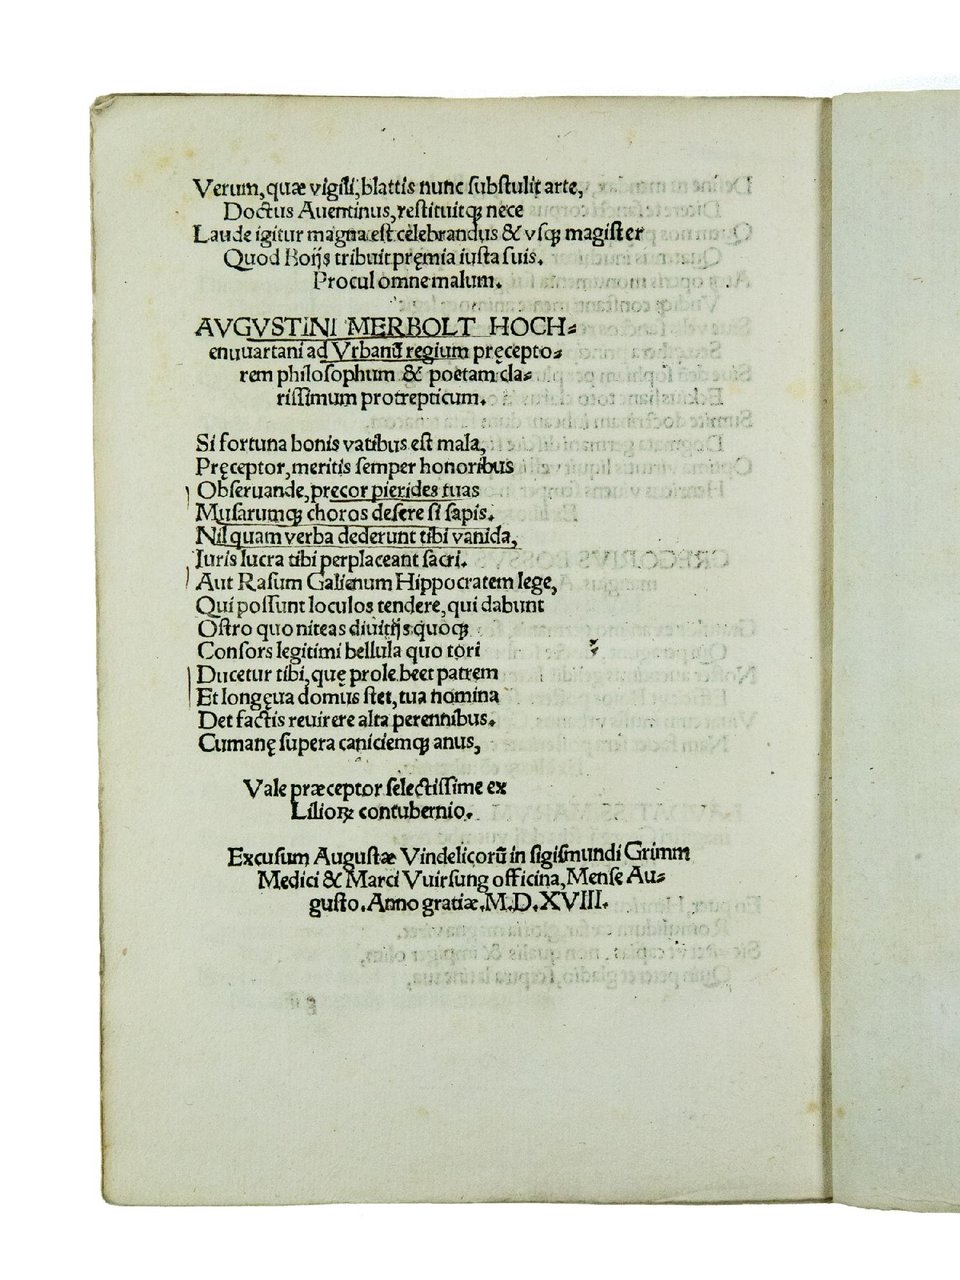 Verum, quæ vigili, blattis nunc ſubſtulit arte,
Doctus Auentinus, reſtituitqꝫ nece
Laude igitur magna eſt celebrandus & vſqꝫ magiſter
Quod Boijs tribuit pręmia iuſta ſuis.
Procul omne malum.
AVGVSTINI MERBOLT HOCH⸗
enuuartani ad Vrbanū regium pręcepto⸗
rem philoſophum & poetam cla⸗
riſſimum protrepticum.
Si fortuna bonis vatibus eſt mala,
Pręceptor, meritis ſemper honoribus
Obſeruande, precor pierides tuas
Muſarumqꝫ choros deſere ſi ſapis.
Nil quam verba dederunt tibi vanida,
Juris lucra tibi perplaceant ſacri.
Aut Raſum Galienum Hippocratem lege,
Qui poſſunt loculos tendere, qui dabunt
Oſtro quo niteas diuitijs quoqꝫ
Conſors legitimi bellula quo tori
Ducetur tibi, quę prole beet patrem
Et longęua domus ſtet, tua nomina
Det factis reuirere alta perennibus.
Cumanę ſupera caniciemqꝫ anus,
Vale præceptor ſelectiſſime ex
Lilioꝝ contubernio.
Excuſum Auguſtæ Vindelicorū in ſigiſmundi Grimm
Medici & Marci Vuirſung officina, Menſe Au⸗
guſto. Anno gratiæ. M.D.XVIII.